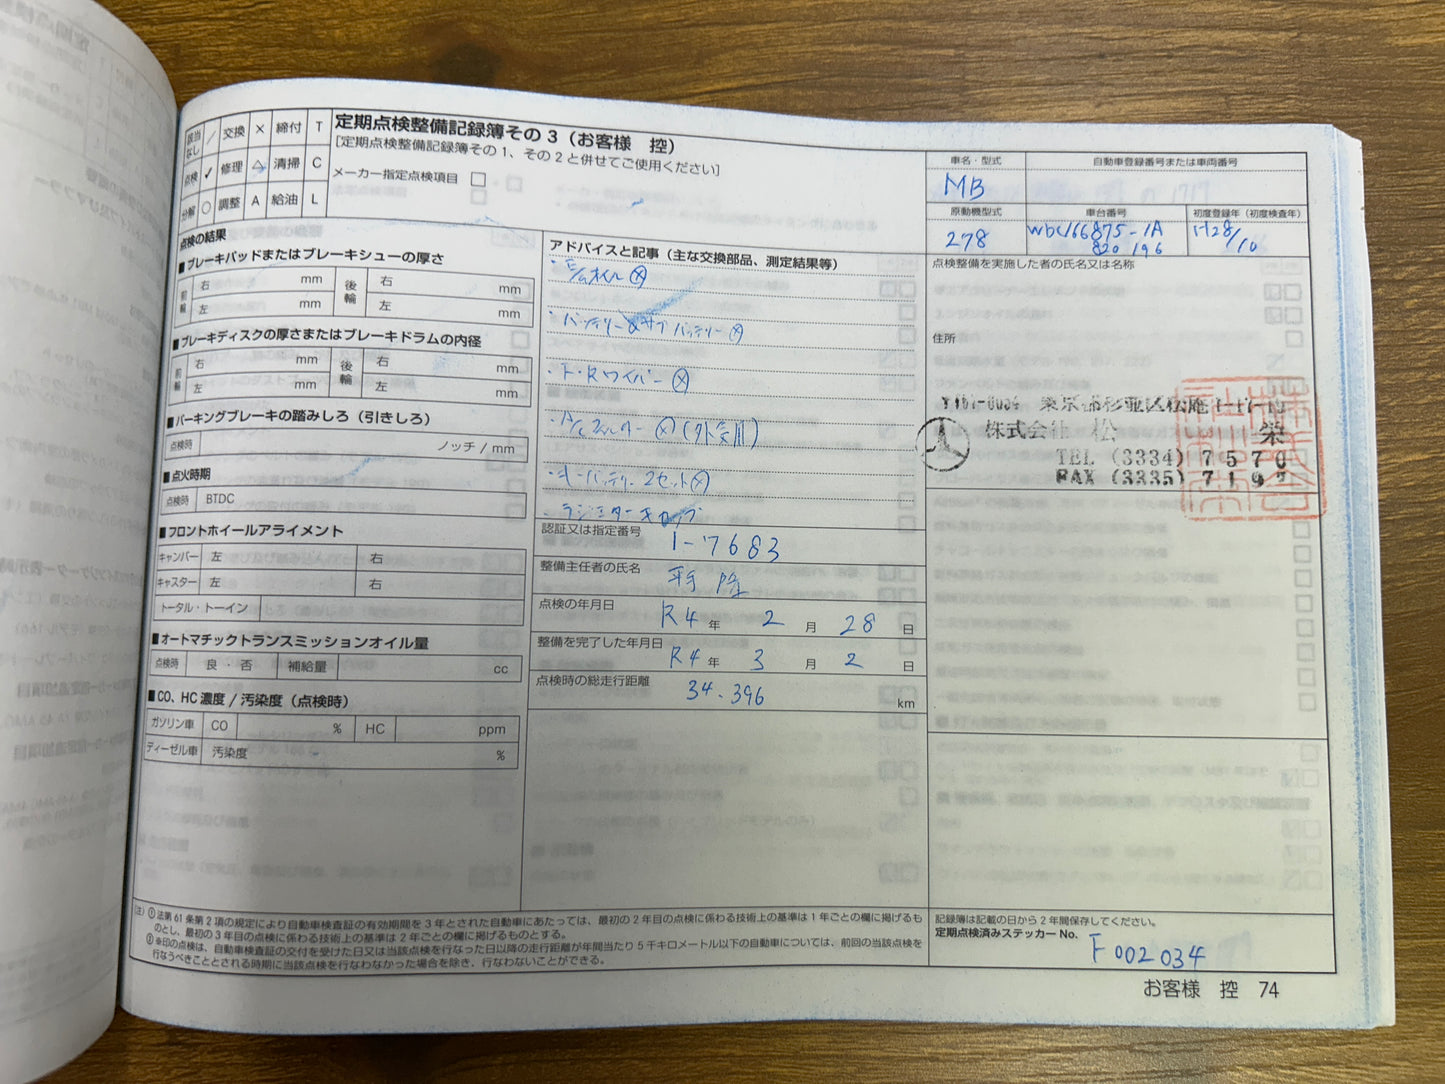 該当なし / 交換 × 締付 T
点検 ✓ 修理 △ 清掃 C
分解 ○ 調整 A 給油 L
定期点検整備記録簿その3（お客様 控）
[定期点検整備記録簿その1、その2と併せてご使用ください]
メーカー指定点検項目 □
点検の結果
■ブレーキパッドまたはブレーキシューの厚さ
前輪 右 mm 後輪 右 mm
左 mm 左 mm
■ブレーキディスクの厚さまたはブレーキドラムの内径
前輪 右 mm 後輪 右 mm
左 mm 左 mm
■パーキングブレーキの踏みしろ（引きしろ）
点検時 ノッチ / mm
■点火時期
点検時 BTDC
■フロントホイールアライメント
キャンバー 左 右
キャスター 左 右
トータル・トーイン
■オートマチックトランスミッションオイル量
点検時 良・否 補給量 cc
■CO、HC 濃度 / 汚染度（点検時）
ガソリン車 CO % HC ppm
ディーゼル車 汚染度 %
アドバイスと記事（主な交換部品、測定結果等）
オイル ⊗
・バッテリー&サブバッテリー ⊗
・F・Rワイパー ⊗
・A/Cフィルター ⊗（外気用）
・キーバッテリー 2セット ⊗
・ラジエターキャップ
認証又は指定番号 1-7683
整備主任者の氏名
点検の年月日 R4 年 2 月 28 日
整備を完了した年月日 R4 年 3 月 2 日
点検時の総走行距離 34.396 km
車名・型式 自動車登録番号または車両番号
MB
原動機型式 車台番号 初度登録年（初度検査年）
278 WDC166875-1A H28/10
820196
点検整備を実施した者の氏名又は名称
住所
東京都杉並区松庵
株式会社 松 栄
TEL (3334) 7570
FAX (3335) 7199
(注) ① 法第61条第2項の規定により自動車検査証の有効期間を3年とされた自動車にあたっては、最初の2年目の点検に係わる技術上の基準は1年ごとの欄に掲げるも
のとし、最初の3年目の点検に係わる技術上の基準は2年ごとの欄に掲げるものとする。
② ※印の点検は、自動車検査証の交付を受けた日又は当該点検を行なった日以降の走行距離が年間当たり5千キロメートル以下の自動車については、前回の当該点検を
行なうべきこととされる時期に当該点検を行なわなかった場合を除き、行なわないことができる。
記録簿は記載の日から2年間保存してください。
定期点検済みステッカー No. F002034
お客様 控 74